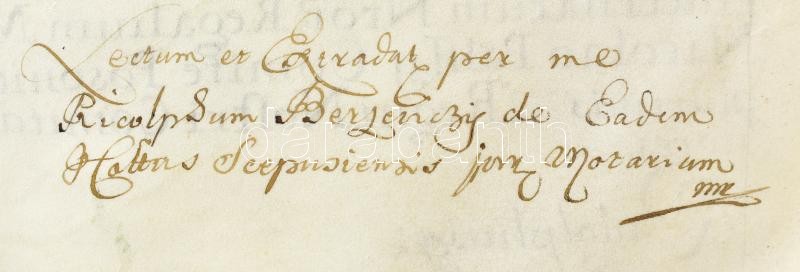 Lectum et Extradatx per me
Ricolphum Berzeviczy de Eadem
Cottus Scepusiensis jurx Notarium
mp